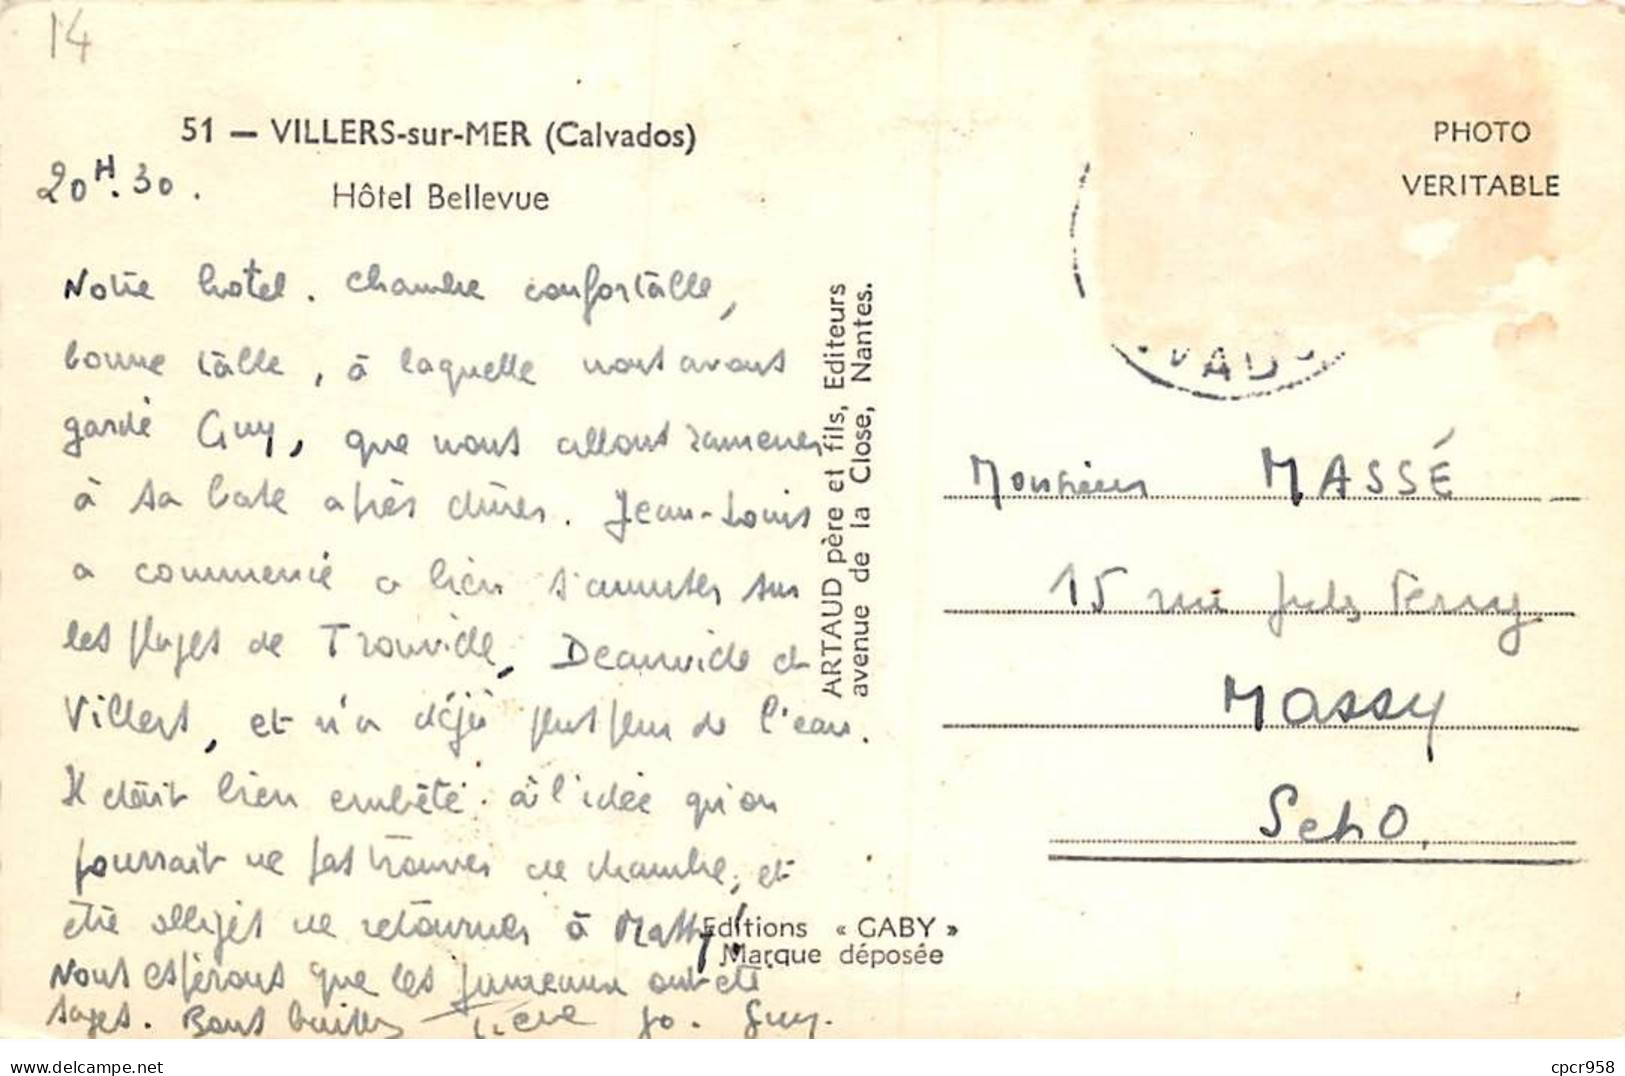 14
51 — VILLERS-sur-MER (Calvados)
20H.30.
Hôtel Bellevue
PHOTO
VERITABLE
Notre hotel. Chambre confortable,
bonne table, à laquelle nous avons
gardé Guy, que nous allons ramener
à sa base après dîner. Jean-Louis
a commencé a bien s'amuser sur
les plages de Trouville, Deauville et
Villers, et n'a déjà plus peur de l'eau.
Il était bien embêté à l'idée qu'on
pourrait ne pas trouver de chambre, et
être obligés de retourner à Massy!
Nous espérons que les jumeaux ont été
sages. Bons baisers Jo. Guy.
ARTAUD père et fils, Editeurs
avenue de la Close, Nantes.
Editions « GABY »
Marque déposée
VAD
Monsieur MASSÉ
15 rue Jules Ferry
Massy
S et O.
delcampe.net
cpcr958